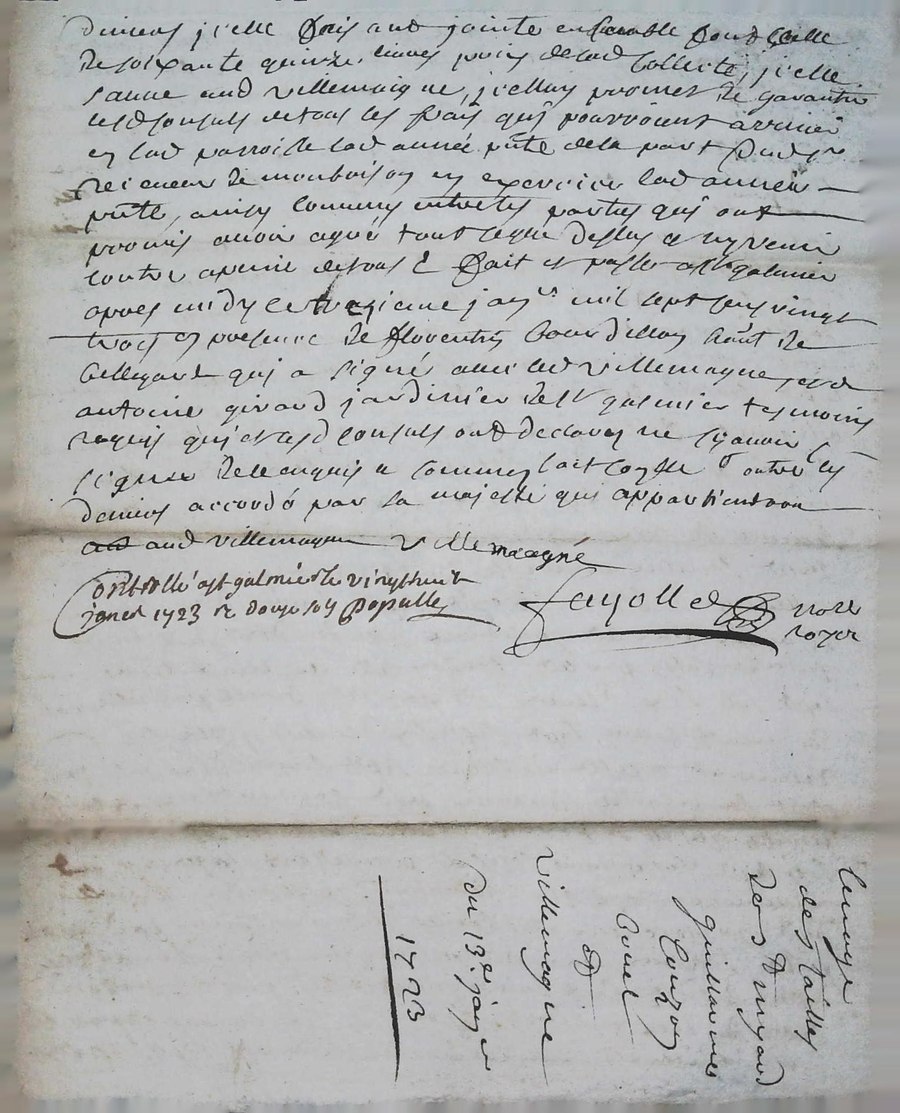 deniers icelle jointe ensemble
de soixante quinze livres prix de lad collecte, icelle
aud villemaigne, promet de garantir
lesd consuls de tous les frais quy pourroient arriver
en lad parroisse lad année pnte de la part dud sr
receveur de montbrison en exercice lad année
pnte, ainsy convenu entre les parties quy ont
promis avoir agréé tout ce que dessus et ny venir
contre a peine de tous d fait et passé a st galmier
apres midy le trezieme janr mil sept cens vingt
trois en presence de floventin bourdillon hoste de
qui a signé avec led villemagne, et de
antoine girard jardinier de st galmier tesmoins
requis qui et lesd consuls ont declarez ne sçavoir
signer de ce enquis et sommez outre les
deniers accordé par sa majesté qui appartiendron
aud villemagne villemaagne
Controllé a st galmier le vingt huit
janer 1723 rc douze sols Populle
fayolle nore
royer
des tailles
Guillaume
Couzon
et
villemagne
du 13e janer
1723